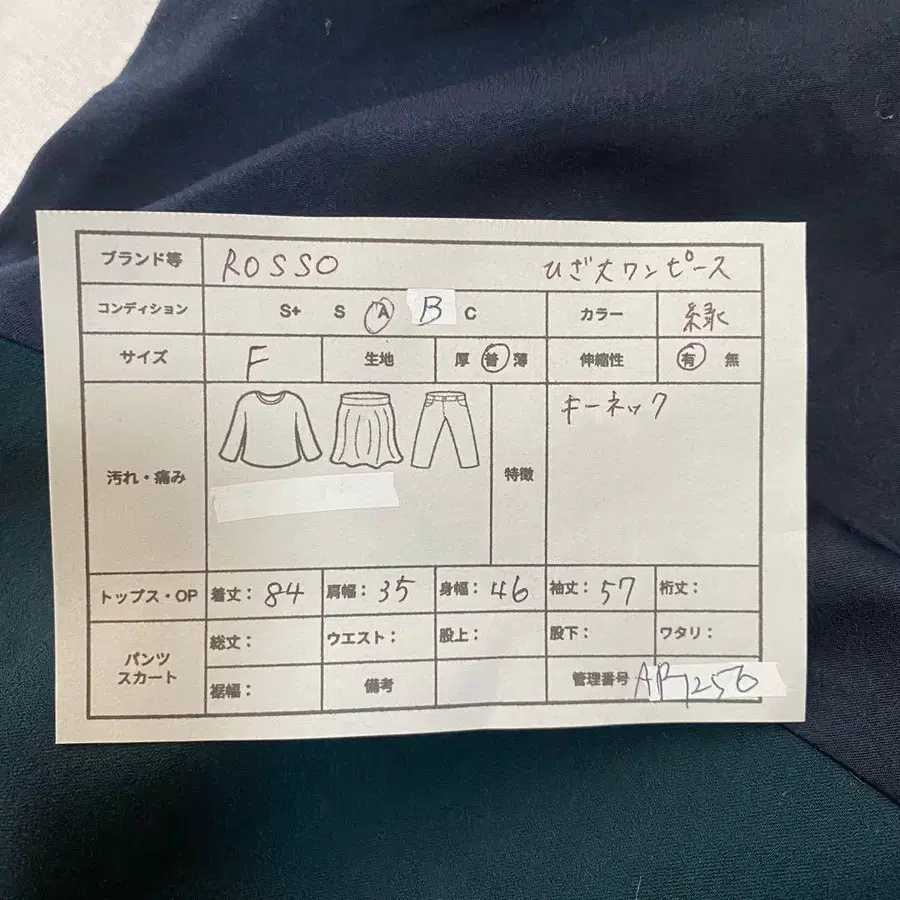 ブランド等 ROSSO ひざ丈ワンピース
コンディション S+ S A B C カラー 緑
サイズ F 生地 厚 普 薄 伸縮性 有 無
汚れ・痛み 特徴 キーネック
トップス・OP 着丈：84 肩幅：35 身幅：46 袖丈：57 裄丈：
パンツ スカート 総丈： ウエスト： 股上： 股下： ワタリ：
裾幅： 備考 管理番号